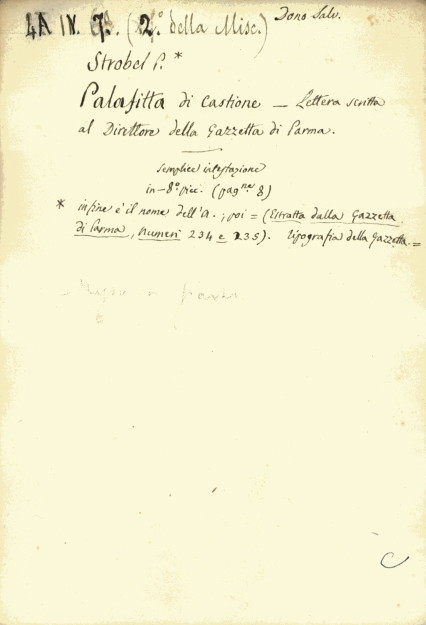 4A IV. 7. (2.° della Misc.) Dono Salv.
Strobel P. *
Palafitta di Castione — Lettera scritta
al Direttore della Gazzetta di Parma.
semplice intestazione
in-8° picc. (pag.ne 8)
* infine è il nome dell'A.; poi = (Estratta dalla Gazzetta
di Parma, numeri 234 e 235). Tipografia della Gazzetta. =
C